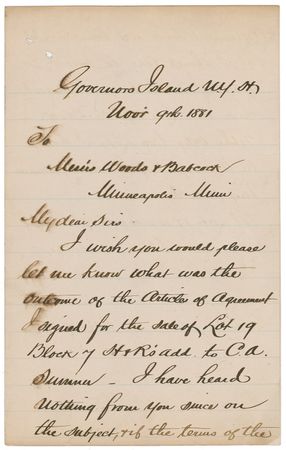 Governors Island N.Y. H.
Nov'r 9th 1881
To
Mess'rs Woods & Babcock
Minneapolis Minn
My dear Sirs
I wish you would please
let me know what was the
outcome of the Articles of Agreement
I signed for the sale of Lot 19
Block 7 H & R's add. to C.A.
Sumner – I have heard
nothing from you since on
the subject, & if the terms of the